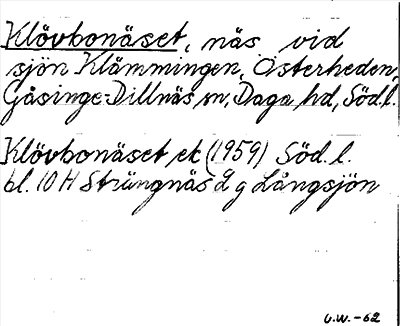 Klövbonäset, näs vid
sjön Klämmingen, Österheden,
Gåsinge-Dillnäs sn, Daga hd, Södl.
Klövbonäset, ek (1959) Söd. l.
bl. 10 H Strängnäs d g Långsjön
G.W.-62